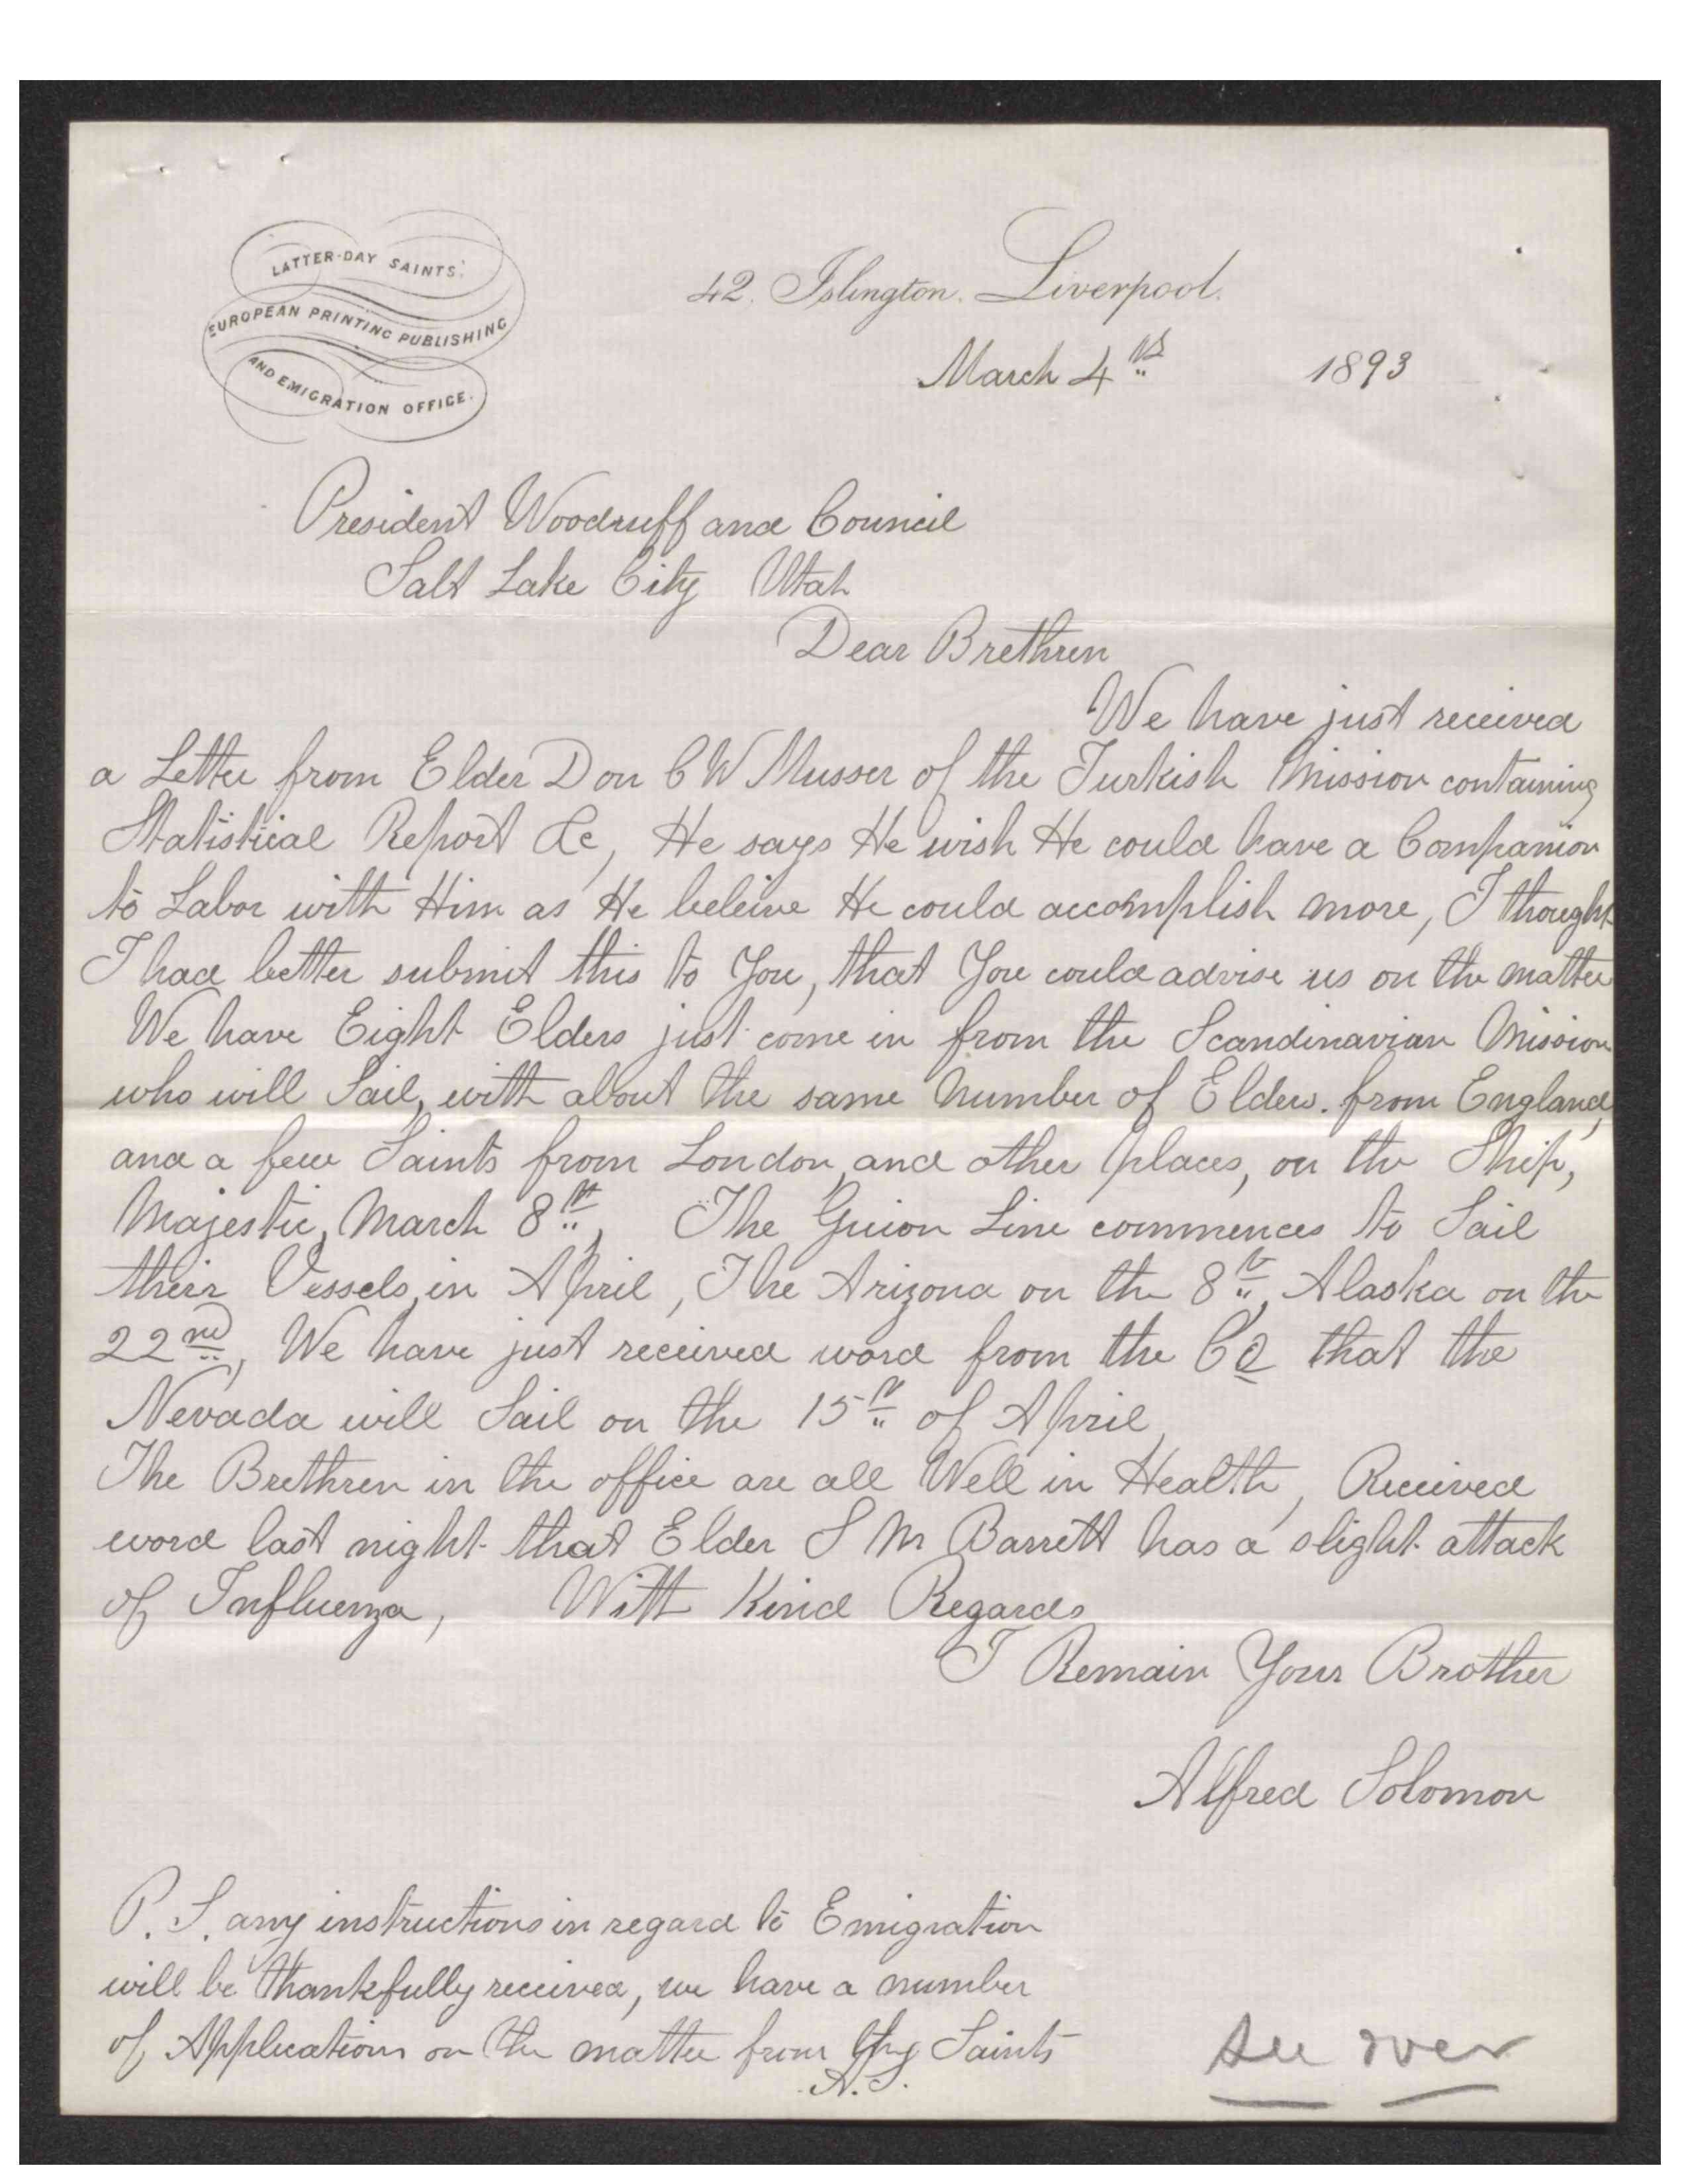 LATTER-DAY SAINTS'
EUROPEAN PRINTING PUBLISHING
AND EMIGRATION OFFICE.
42. Islington. Liverpool.
March 4th 1893
President Woodruff and Council
Salt Lake City Utah
Dear Brethren
We have just received
a Letter from Elder Don C W Musser of the Turkish Mission containing
Statistical Report &c, He says He wish He could have a Companion
to Labor with Him as He beleive He could accomplish more, I thought
I had better submit this to You, that You could advise us on the matter
We have Eight Elders just come in from the Scandinavian Mission
who will Sail, with about the same Number of Elders. from England,
and a few Saints from London, and other places, on the Ship,
Majestic, March 8th, The Guion Line commences to Sail
their Vessels, in April, The Arizona on the 8th, Alaska on the
22nd, We have just received word from the Co that the
Nevada will Sail on the 15th of April,
The Brethren in the office are all Well in Health, Received
word last night that Elder S M Barrett has a slight attack
of Influenza, With Kind Regards
I Remain Your Brother
Alfred Solomon
P. S. any instructions in regard to Emigration
will be thankfully received, we have a number
of Applications on the matter from Saints
A.S.
See over